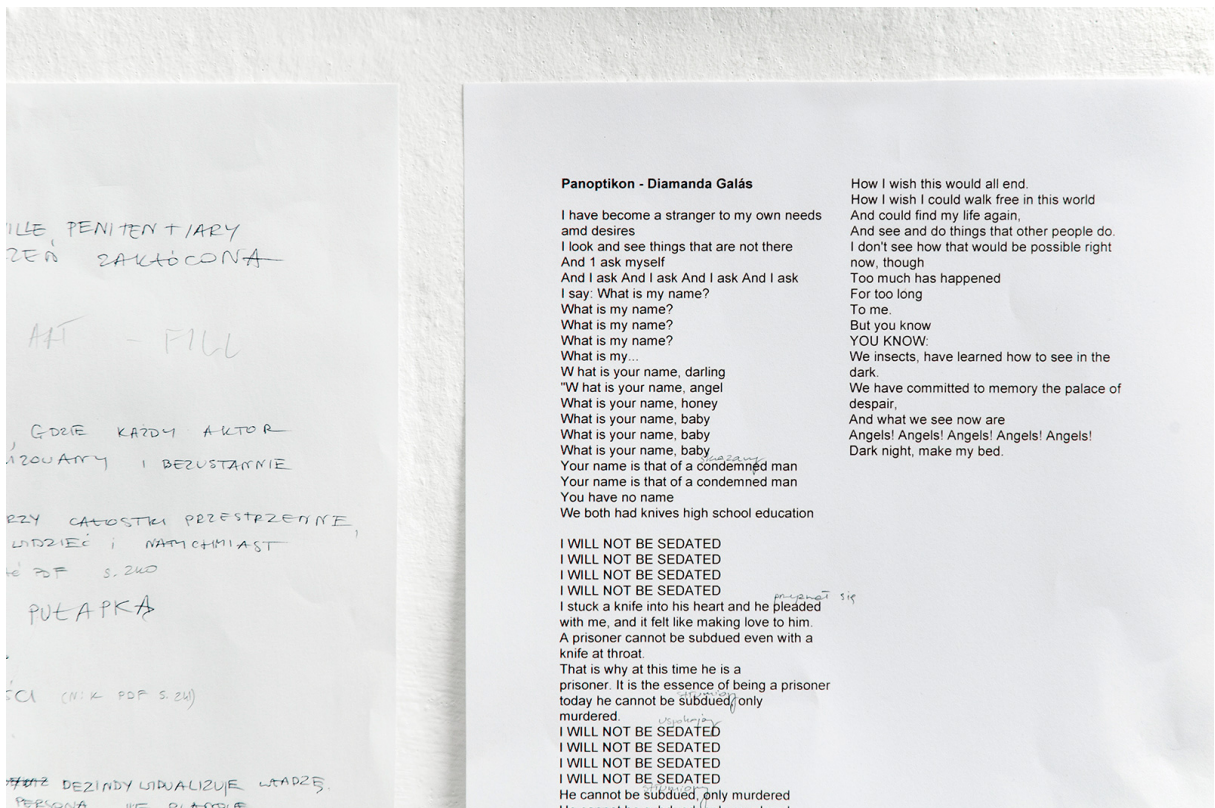 PENITENTIARY
ZAKŁÓCONA
ART - FILL
, GDZIE KAŻDY AKTOR
I BEZUSTANNIE
CAŁOSTKI PRZESTRZENNE,
WIDZIEĆ I NATYCHMIAST
PDF S. 240
PUŁAPKĄ
(N:K PDF S. 241)
DEZINDYWIDUALIZUJE WŁADZĘ.
PERSONA
Panoptikon - Diamanda Galás
I have become a stranger to my own needs
amd desires
I look and see things that are not there
And 1 ask myself
And I ask And I ask And I ask And I ask
I say: What is my name?
What is my name?
What is my name?
What is my name?
What is my...
W hat is your name, darling
"W hat is your name, angel
What is your name, honey
What is your name, baby
What is your name, baby
What is your name, baby
skazany
Your name is that of a condemned man
Your name is that of a condemned man
You have no name
We both had knives high school education
I WILL NOT BE SEDATED
I WILL NOT BE SEDATED
I WILL NOT BE SEDATED
I WILL NOT BE SEDATED
się
I stuck a knife into his heart and he pleaded
with me, and it felt like making love to him.
A prisoner cannot be subdued even with a
knife at throat.
That is why at this time he is a
prisoner. It is the essence of being a prisoner
today he cannot be subdued, only
murdered.
I WILL NOT BE SEDATED
I WILL NOT BE SEDATED
I WILL NOT BE SEDATED
I WILL NOT BE SEDATED
He cannot be subdued, only murdered
How I wish this would all end.
How I wish I could walk free in this world
And could find my life again,
And see and do things that other people do.
I don't see how that would be possible right
now, though
Too much has happened
For too long
To me.
But you know
YOU KNOW:
We insects, have learned how to see in the
dark.
We have committed to memory the palace of
despair,
And what we see now are
Angels! Angels! Angels! Angels! Angels!
Dark night, make my bed.